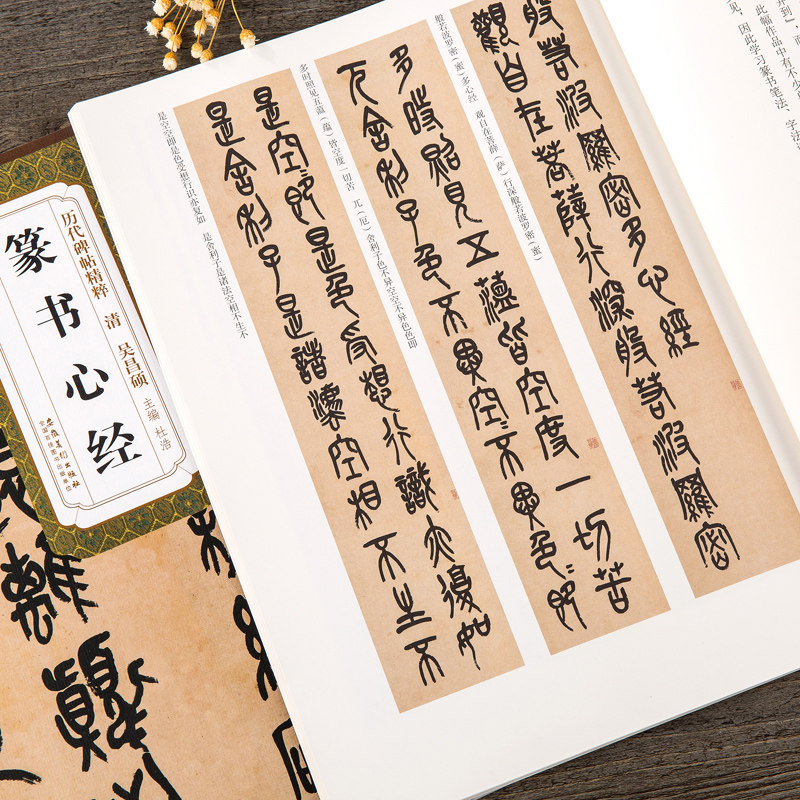 历代碑帖精粹 清 吴昌硕
篆书心经
主编 杜浩
安徽美术出版社
全国百佳图书出版单位
此幅作品中有不少
见，因此学习篆书笔法、字法
般若波罗密（蜜）多心经 观自在菩薛（萨）行深般若波罗密（蜜）
般若波羅密多心經
觀自在菩薛行深般若波羅密
多时照见五薀（蕴）皆空度一切苦 兀（厄）舍利子色不异空空不异色色即
多時照見五薀皆空度一切苦
兀舍利子色不異空〻不異色〻即
是空空即是色受想行识亦复如 是舍利子是诸法空相不生不
是空〻即是色受想行識亦復如
是舍利子是諸灋空相不生不